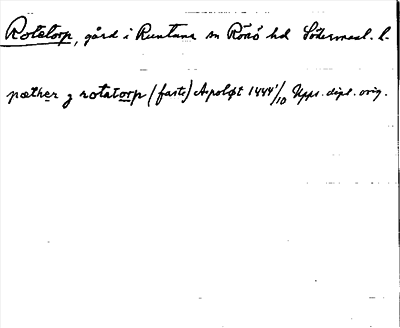 Rotetorp, gård i Runtuna sn Rönö hd Södermanl. l.
pæther z rotatorp (faste) Apoløt 1444 1/10 Upps. dipl. orig.